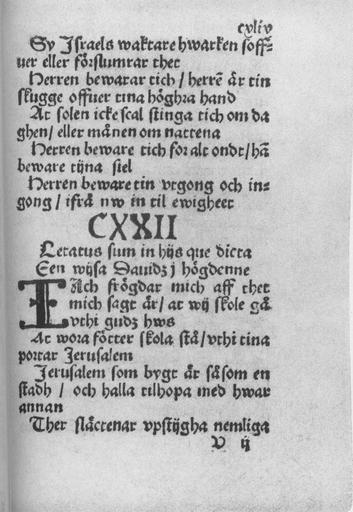 cxliv
Sy Israels waktare hwarken soff-
uer eller förslumrar thet
Herren bewarar tich / herrē är tin
skugge offuer tina höghra hand
At solen icke scal stinga tich om da
ghen / eller månen om nattena
Herren beware tich for alt ondt / hā
beware tijna siel
Herren beware tin vtgong och in-
gong / ifrå nw in til ewigheet
CXXII
Letatus sum in hijs que dicta
Een wijsa Dauidz j högdenne
IAch frögdar mich aff thet
mich sagt är / at wij skole gå
vthi gudz hws
At wora fötter skola stå / vthi tina
portar Jerusalem
Jerusalem som bygt är såsom en
stadh / och halla tilhopa med hwar
annan
Ther släctenar vpstijgha nemliga
V ij